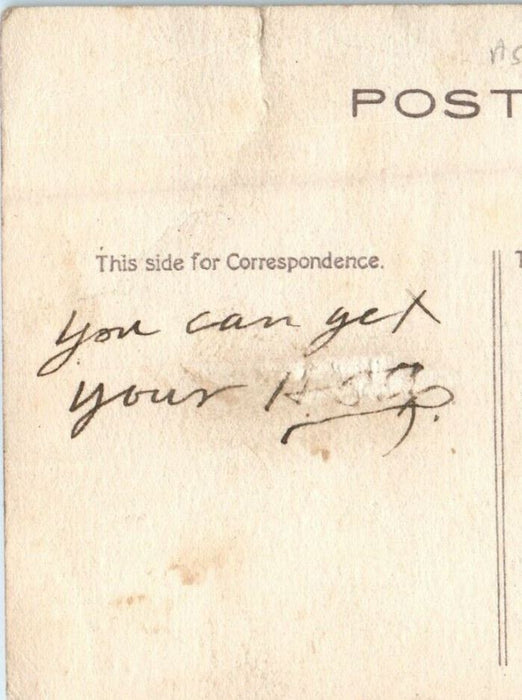 POST
This side for Correspondence.
you can get
your